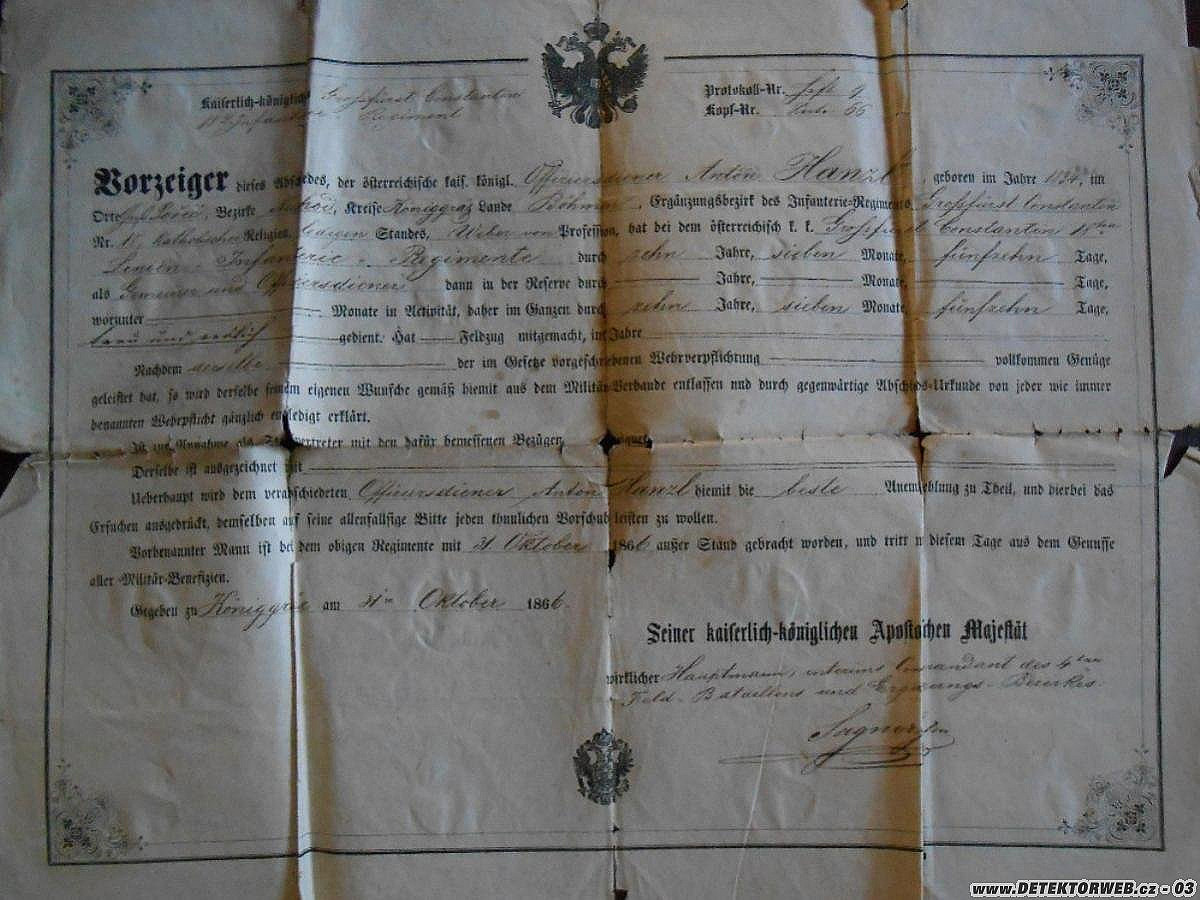 Kaiserlich-königlich Großfürst Constantin
Infanterie Regiment
Protokoll-Nr.
Kopf-Nr. 66
Vorzeiger dieses Abschiedes, der österreichische kais. königl. Officiersdiener Anton Hanzl, geboren im Jahre 1834, im
Orte Bezirke Kreise Königgraz Lande Böhmen, Ergänzungsbezirk des Infanterie-Regiments Großfürst Constantin
Nr. katholischer Religion, ledigen Standes, Weber von Profession, hat bei dem österreichisch k. k. Großfürst Constantin
Linien Infanterie Regimente durch zehn Jahre, sieben Monate, fünfzehn Tage,
als Gemeiner und Officiersdiener dann in der Reserve durch Jahre, Monate, Tage,
worunter Monate in Activität, daher im Ganzen durch zehn Jahre, sieben Monate, fünfzehn Tage,
treu und redlich gedient. Hat Feldzug mitgemacht, im Jahre
Nachdem derselbe der im Gesetze vorgeschriebenen Wehrverpflichtung vollkommen Genüge
geleistet hat, so wird derselbe seinem eigenen Wunsche gemäß hiemit aus dem Militär-Verbande entlassen und durch gegenwärtige Abschieds-Urkunde von jeder wie immer
benannten Wehrpflicht gänzlich entledigt erklärt.
Ist zur Annahme als Stellvertreter mit den dafür bemessenen Bezügen
Derselbe ist ausgezeichnet mit
Ueberhaupt wird dem verabschiedeten Officiersdiener Anton Hanzl hiemit die beste Anempfehlung zu Theil, und hierbei das
Ersuchen ausgedrückt, demselben auf seine allenfallsige Bitte jeden thunlichen Vorschub leisten zu wollen.
Vorbenannter Mann ist bei dem obigen Regimente mit 31. Oktober 1866 außer Stand gebracht worden, und tritt mit diesem Tage aus dem Genusse
aller Militär-Benefizien.
Gegeben zu Königgräz am 31ten Oktober 1866.
Seiner kaiserlich-königlichen Apostolischen Majestät
wirklicher Hauptmann, interims Commandant des 4ten
Feld-Bataillons und Ergänzungs-Bezirkes.
Sagner
www.DETEKTORWEB.cz - 03